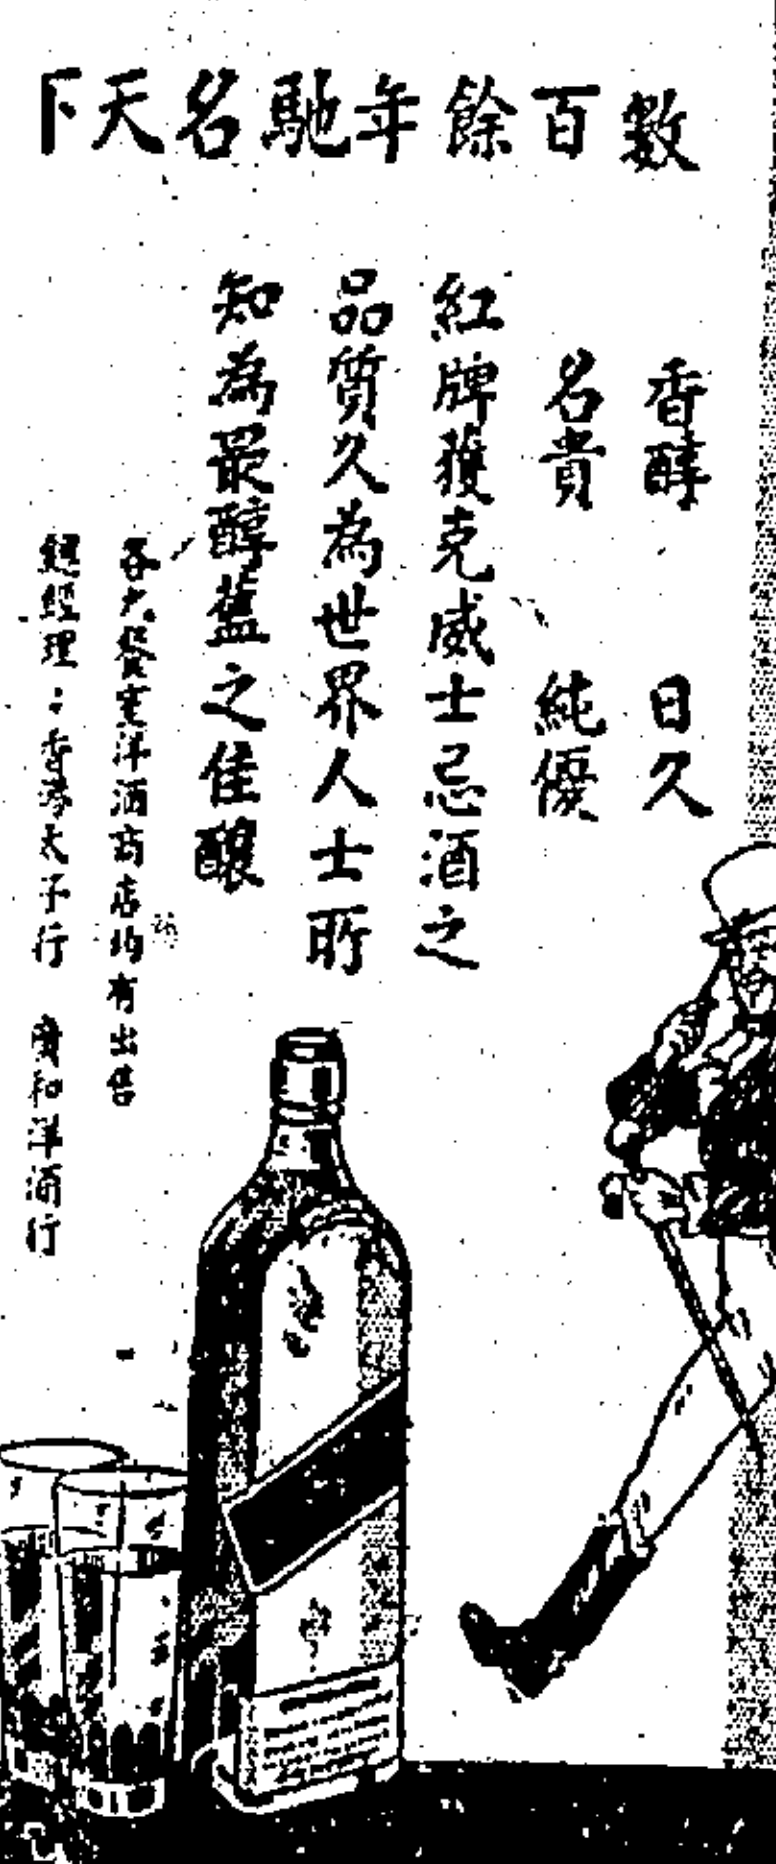 數百餘年馳名天下
香醇 日久
名貴 純優
紅牌獲克威士忌酒之
品質久為世界人士所
知為最醇舊之佳釀
各大餐室洋酒商店均有出售
總經理：香港太子行 廣和洋酒行